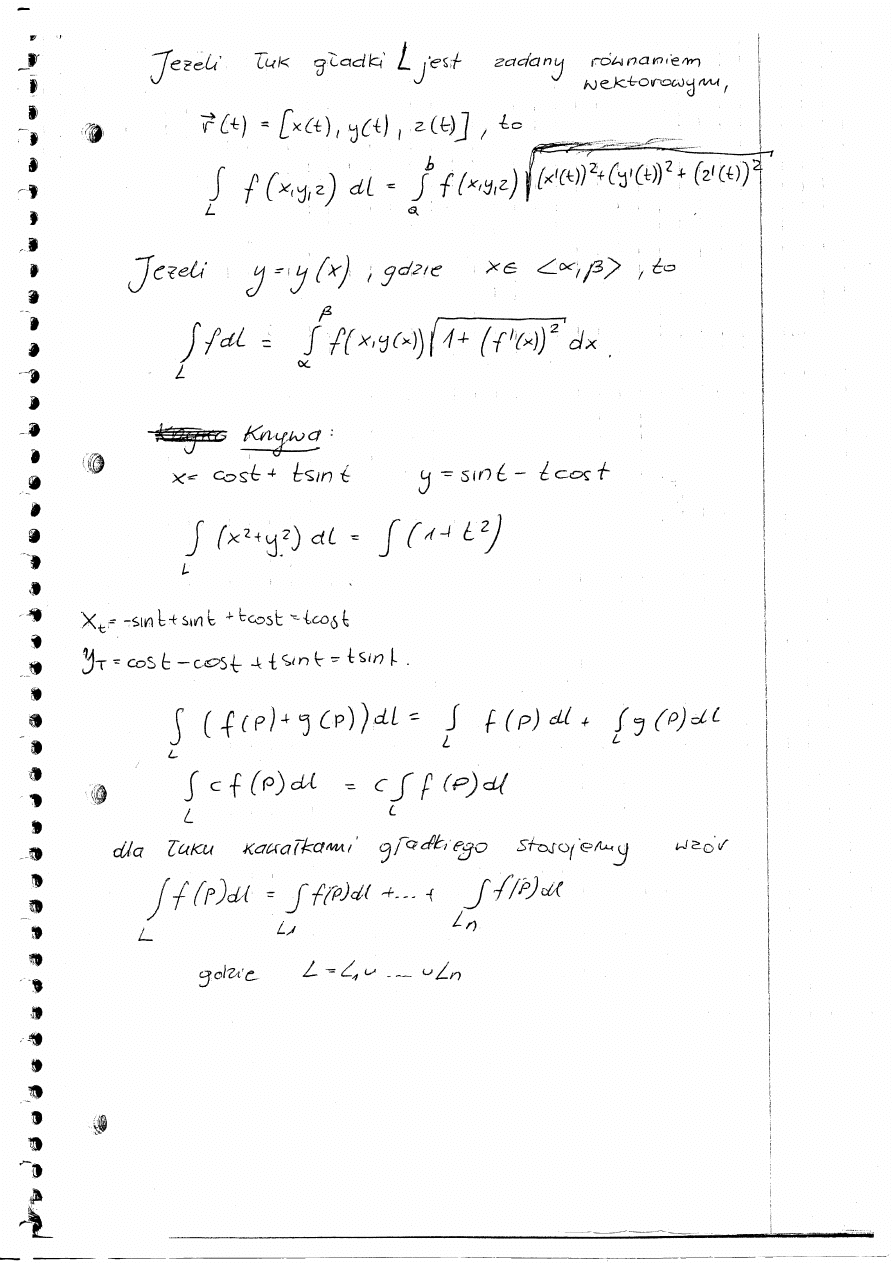 Jeżeli łuk gładki L jest zadany równaniem
wektorowym,
r⃗(t) = [x(t), y(t), z(t)], to
∫_L f(x,y,z) dl = ∫_a^b f(x,y,z) √((x'(t))² + (y'(t))² + (z'(t))²)
Jeżeli y = y(x), gdzie x ∈ <α, β>, to
∫_L f dl = ∫_α^β f(x,y(x)) √(1 + (f'(x))²) dx.
Krzywa:
x = cost + tsint y = sint - tcost
∫_L (x²+y²) dl = ∫(1+t²)
x_t = -sint + sint + tcost = tcost
y_T = cost - cost + tsint = tsint.
∫_L (f(P) + g(P)) dl = ∫_L f(P) dl + ∫_L g(P) dl
∫_L c f(P) dl = c ∫_L f(P) dl
dla łuku kawałkami gładkiego stosujemy wzór
∫_L f(P) dl = ∫_L1 f(P) dl + ... + ∫_Ln f(P) dl
gdzie L = L₁ ∪ ... ∪ Ln